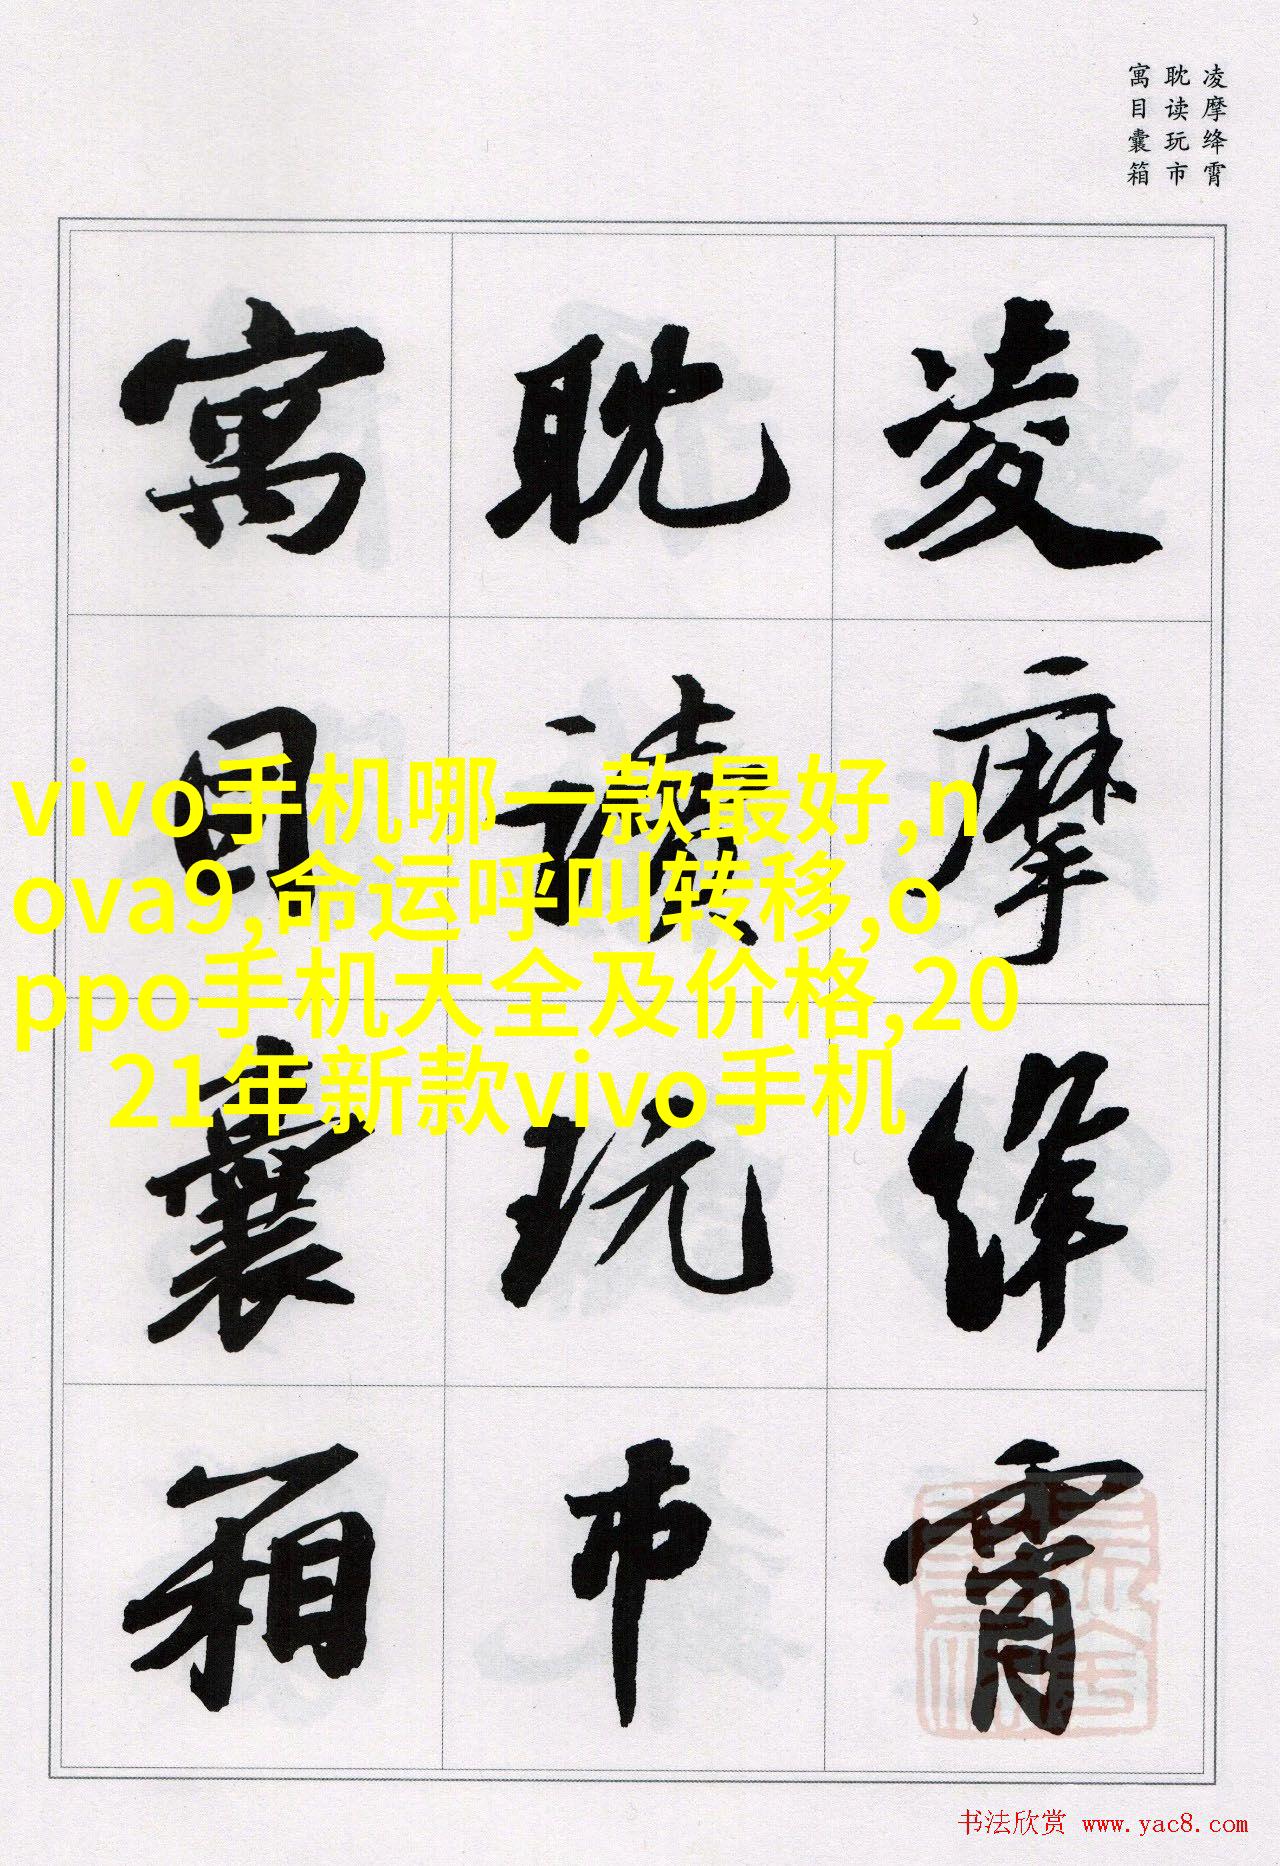 凌摩绛霄
耽读玩市
寓目囊箱
凌摩绛霄
耽读玩市
寓目囊箱
vivo手机哪一款最好,n
ova9,命运呼叫转移,o
ppo手机大全及价格,20
21年新款vivo手机
书法欣赏 www.yac8.com